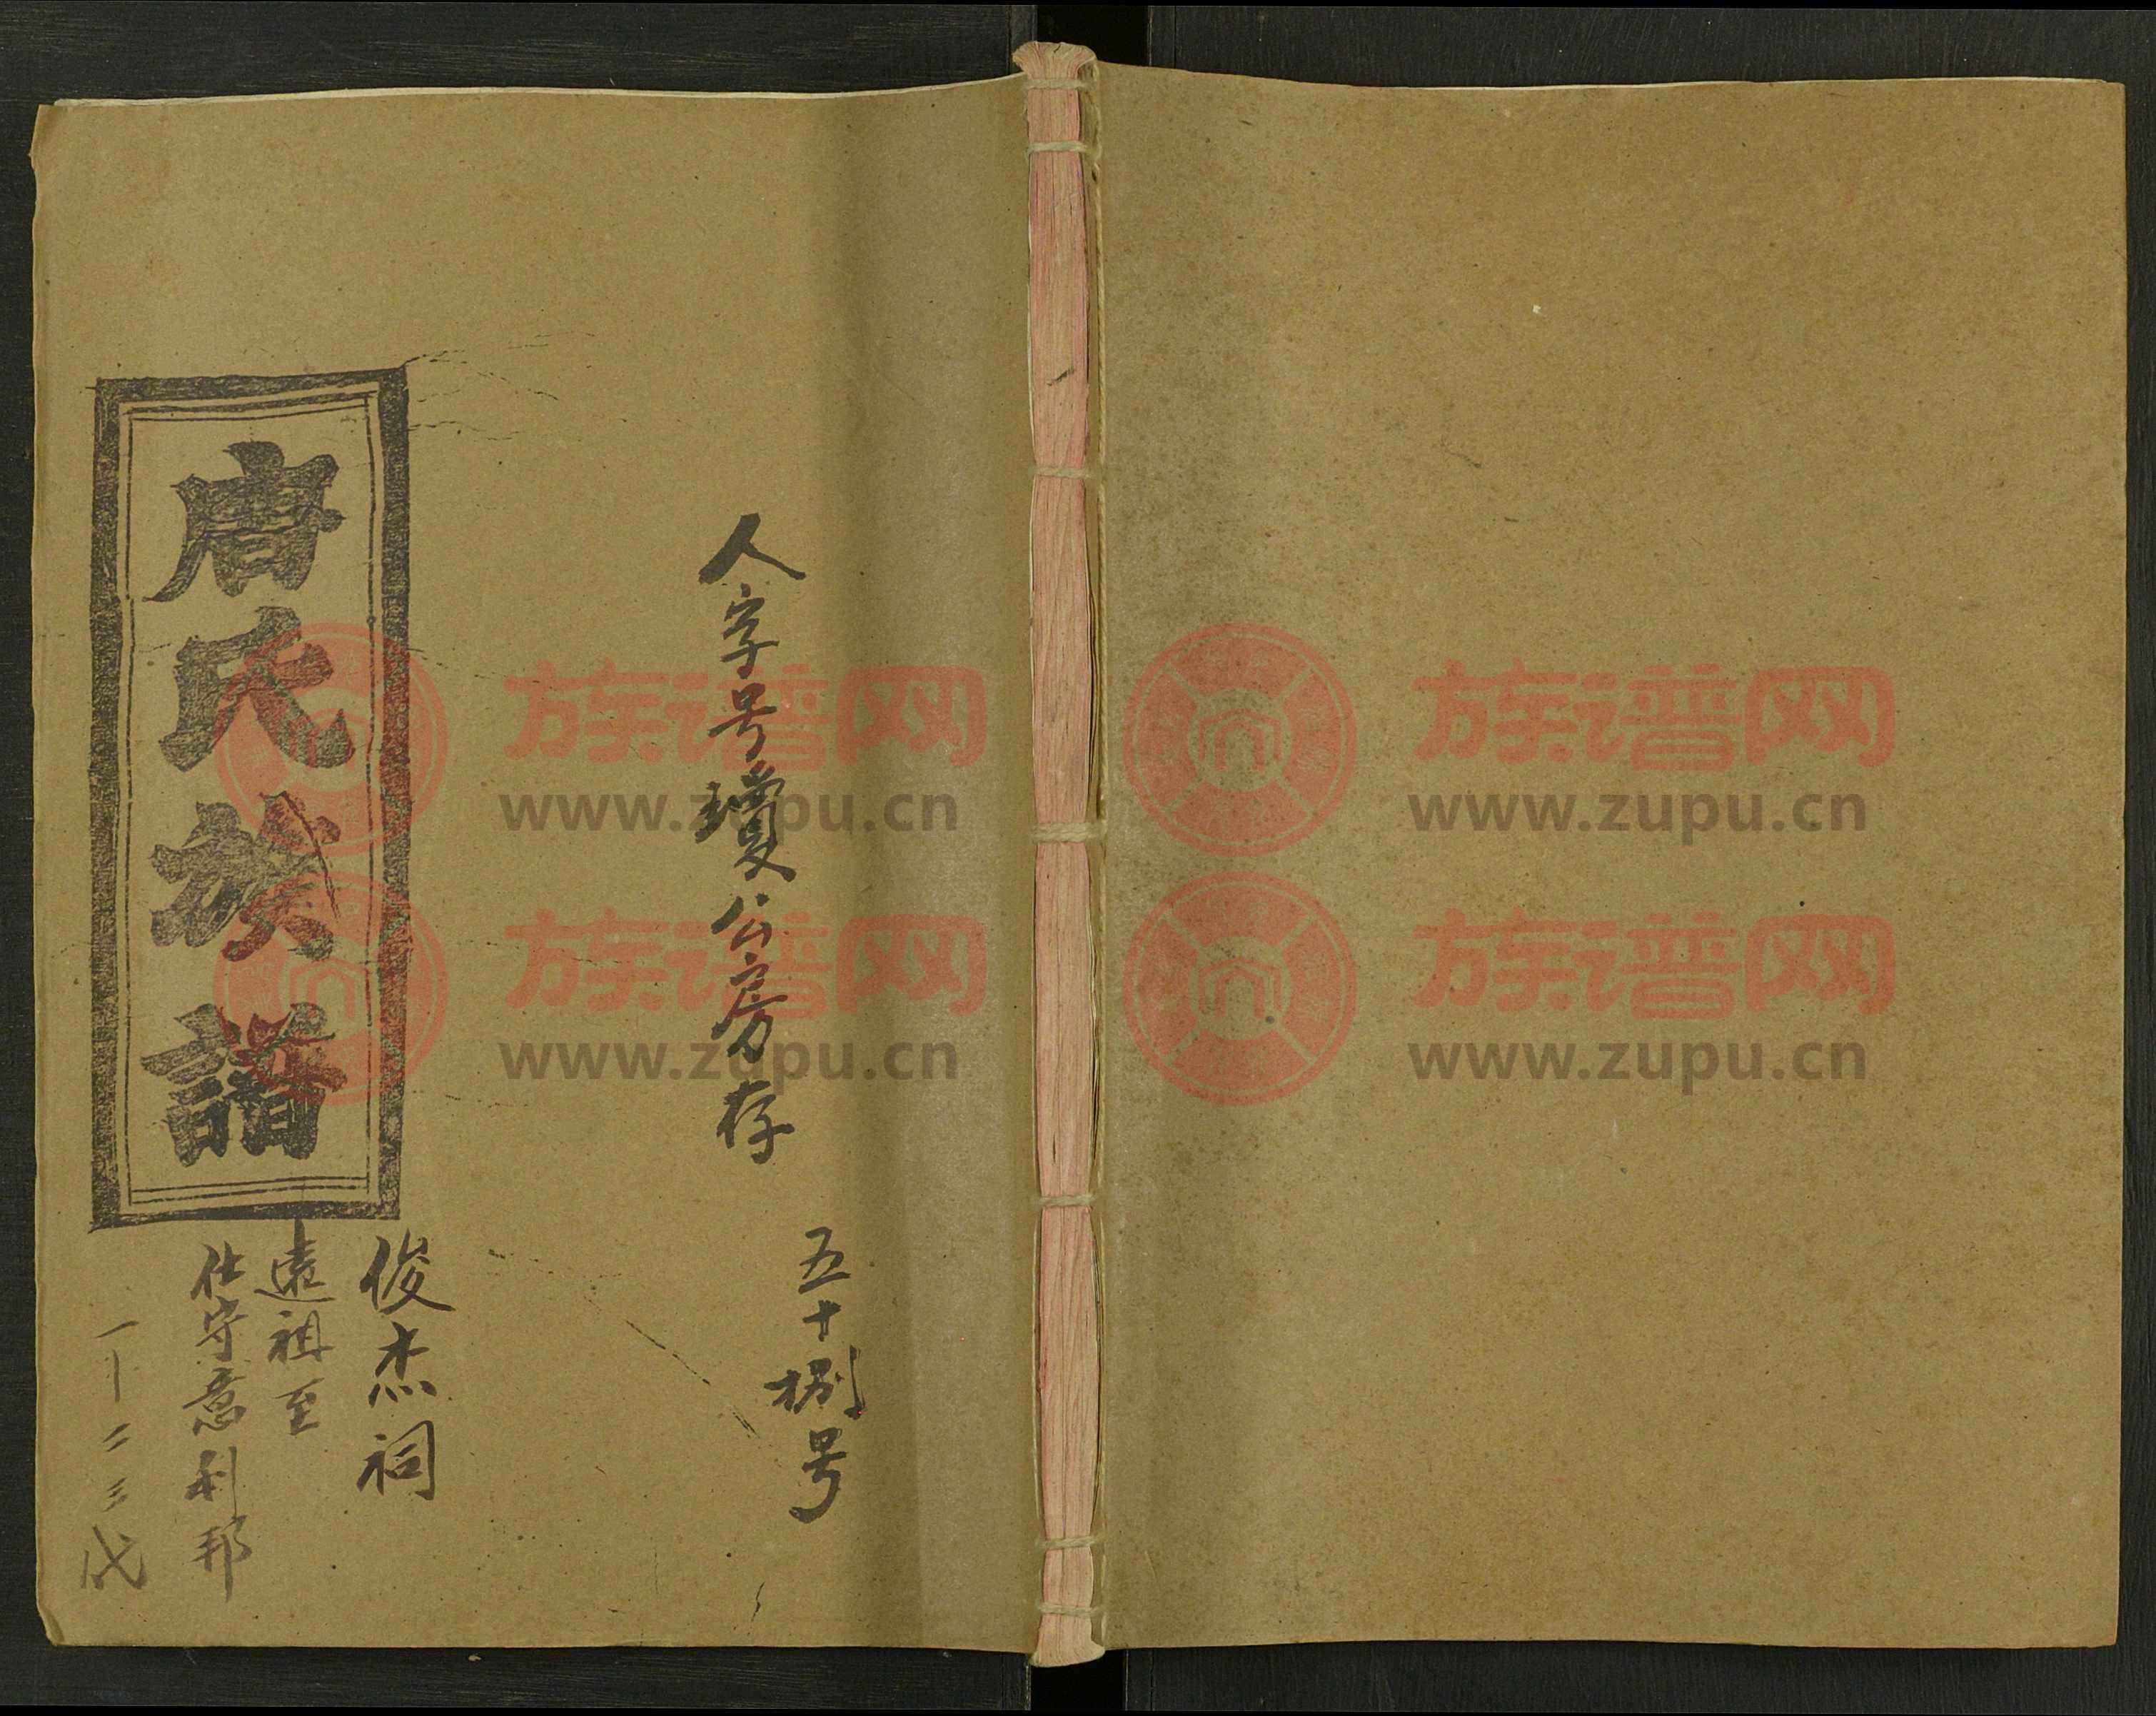 五十捌号
人字号瓊公房存
俊杰祠
遠祖至
仕守意利邦
一卜二三代
唐氏族譜
族谱网
www.zupu.cn
族谱网
www.zupu.cn
族谱网
www.zupu.cn
族谱网
www.zupu.cn